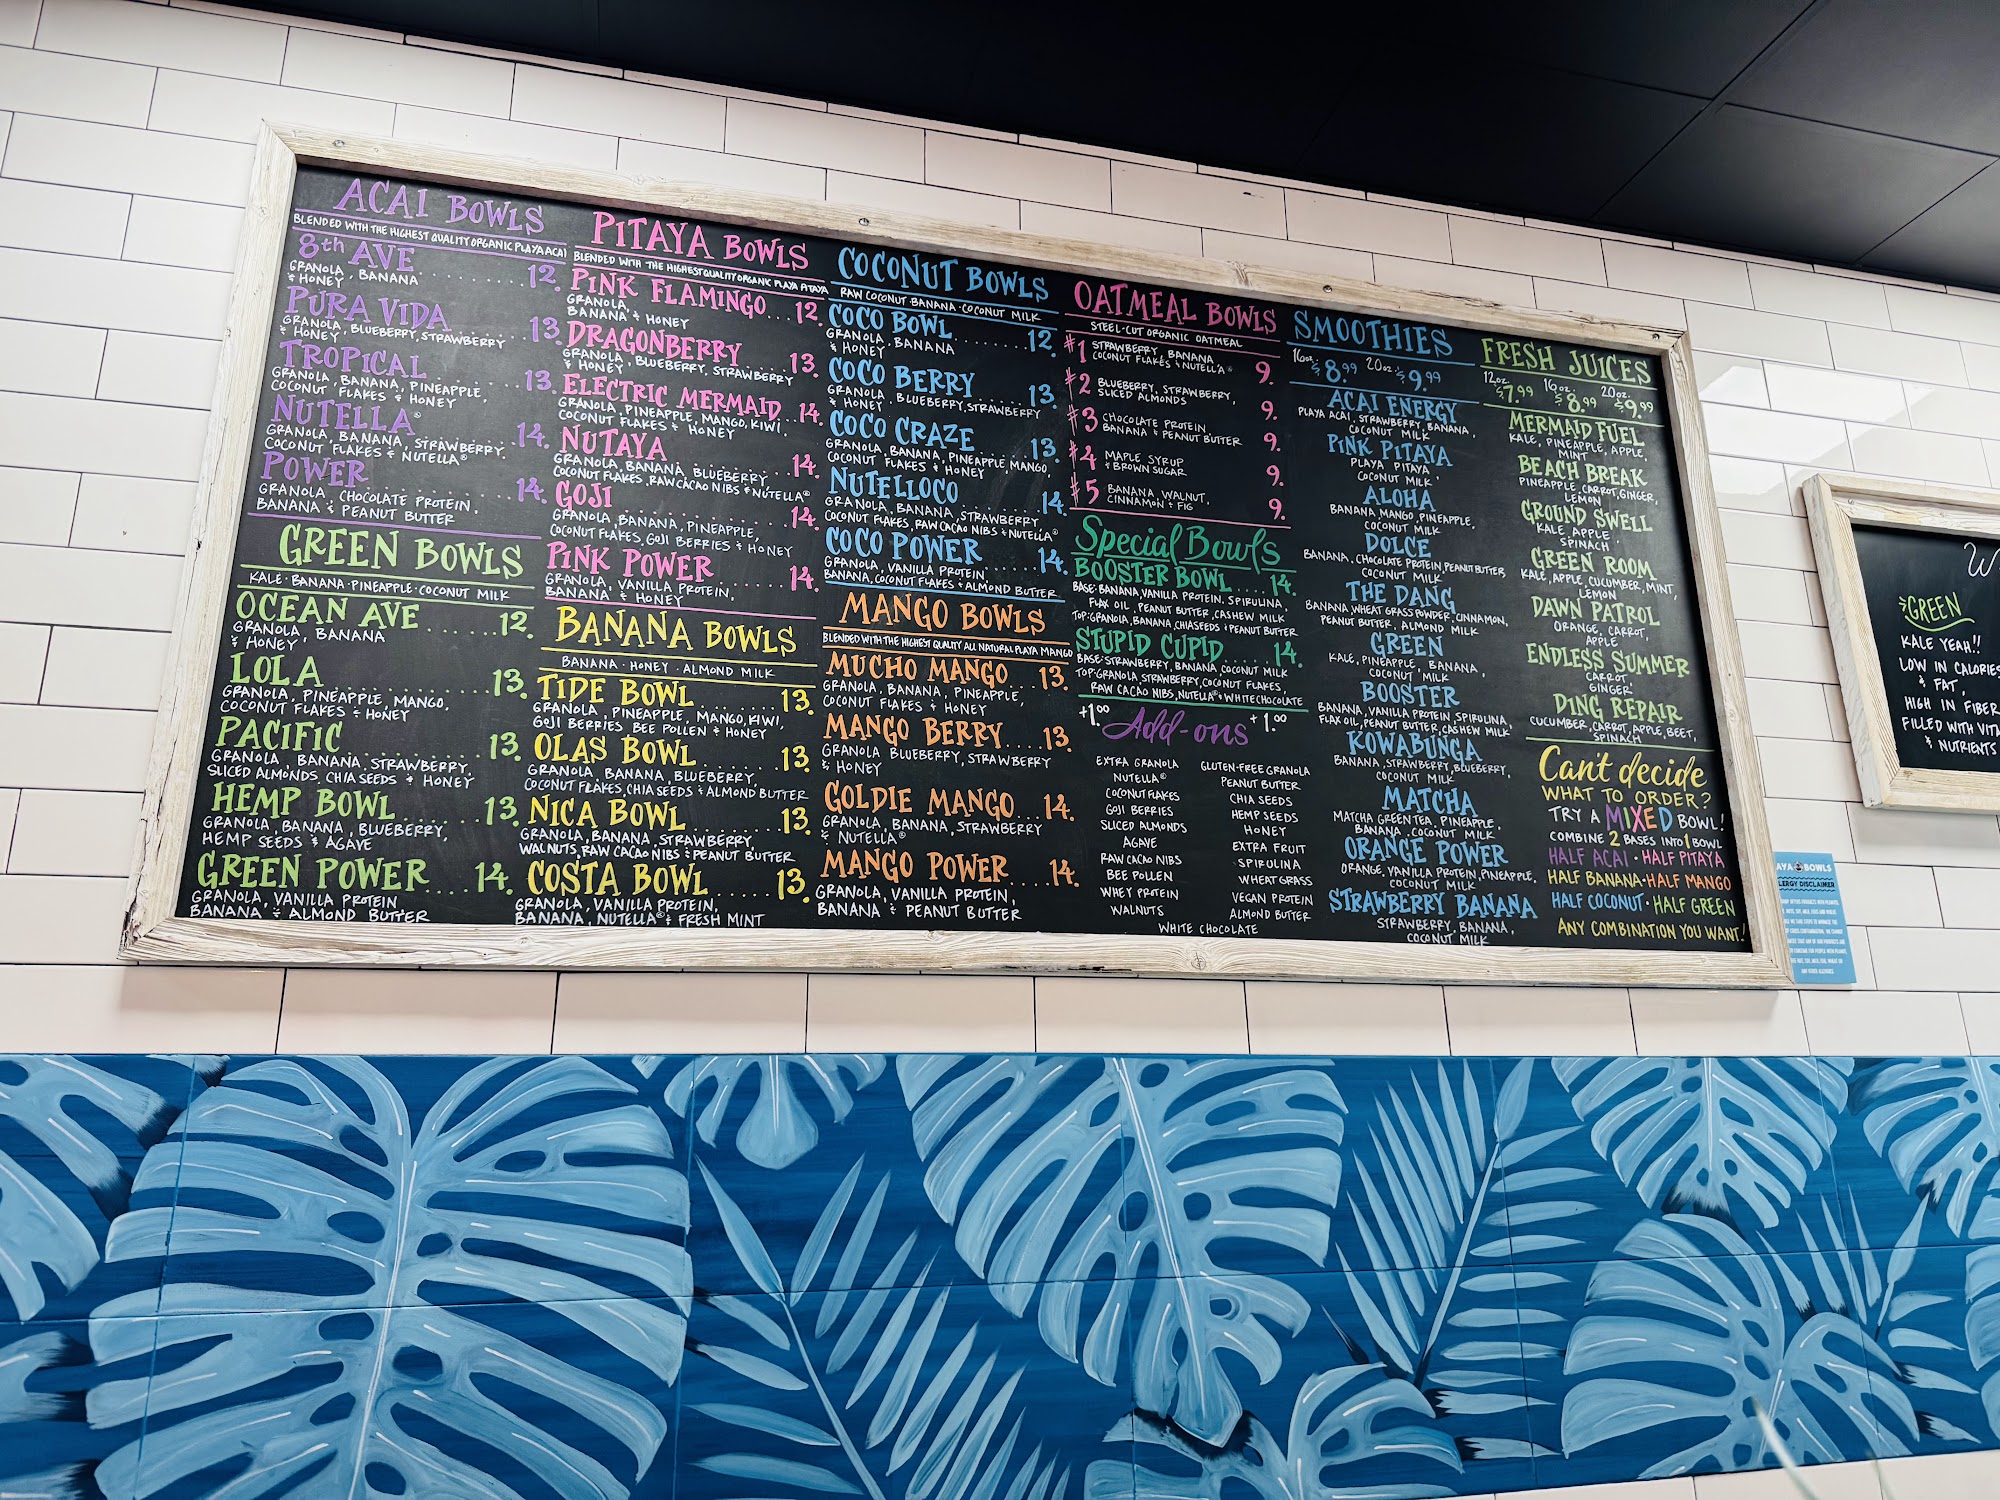 ACAI BOWLS
BLENDED WITH THE HIGHEST QUALITY ORGANIC PLAYA ACAI
8th AVE ........ 12.
GRANOLA, BANANA
& HONEY
PURA VIDA ........ 13.
GRANOLA, BLUEBERRY, STRAWBERRY
& HONEY
TROPICAL ........ 13.
GRANOLA, BANANA, PINEAPPLE,
COCONUT FLAKES & HONEY
NUTELLA® ........ 14.
GRANOLA, BANANA, STRAWBERRY,
COCONUT FLAKES & NUTELLA®
POWER ........ 14.
GRANOLA, CHOCOLATE PROTEIN,
BANANA & PEANUT BUTTER
GREEN BOWLS
KALE · BANANA · PINEAPPLE · COCONUT MILK
OCEAN AVE ...... 12.
GRANOLA, BANANA
& HONEY
LOLA ........ 13.
GRANOLA, PINEAPPLE, MANGO,
COCONUT FLAKES & HONEY
PACIFIC ........ 13.
GRANOLA, BANANA, STRAWBERRY,
SLICED ALMONDS, CHIA SEEDS & HONEY
HEMP BOWL ...... 13.
GRANOLA, BANANA, BLUEBERRY,
HEMP SEEDS & AGAVE
GREEN POWER .... 14.
GRANOLA, VANILLA PROTEIN
BANANA & ALMOND BUTTER
PITAYA BOWLS
BLENDED WITH THE HIGHEST QUALITY ORGANIC PLAYA PITAYA
PINK FLAMINGO... 12.
GRANOLA,
BANANA & HONEY
DRAGONBERRY ..... 13.
GRANOLA, BLUEBERRY, STRAWBERRY
& HONEY
ELECTRIC MERMAID .. 14.
GRANOLA, PINEAPPLE, MANGO, KIWI,
COCONUT FLAKES & HONEY
NUTAYA ........ 14.
GRANOLA, BANANA, BLUEBERRY,
COCONUT FLAKES, RAW CACAO NIBS & NUTELLA®
GOJI ........ 14.
GRANOLA, BANANA, PINEAPPLE,
COCONUT FLAKES, GOJI BERRIES & HONEY
PINK POWER ...... 14.
GRANOLA, VANILLA PROTEIN,
BANANA & HONEY
BANANA BOWLS
BANANA · HONEY · ALMOND MILK
TIDE BOWL ....... 13.
GRANOLA, PINEAPPLE, MANGO, KIWI,
GOJI BERRIES, BEE POLLEN & HONEY
OLAS BOWL ...... 13.
GRANOLA, BANANA, BLUEBERRY,
COCONUT FLAKES, CHIA SEEDS & ALMOND BUTTER
NICA BOWL ...... 13.
GRANOLA, BANANA, STRAWBERRY,
WALNUTS, RAW CACAO NIBS & PEANUT BUTTER
COSTA BOWL ..... 13.
GRANOLA, VANILLA PROTEIN,
BANANA, NUTELLA® & FRESH MINT
COCONUT BOWLS
RAW COCONUT · BANANA · COCONUT MILK
COCO BOWL ...... 12.
GRANOLA, BANANA
& HONEY
COCO BERRY ..... 13.
GRANOLA, BLUEBERRY, STRAWBERRY
& HONEY
COCO CRAZE ..... 13.
GRANOLA, BANANA, PINEAPPLE, MANGO,
COCONUT FLAKES & HONEY
NUTELLOCO ...... 14.
GRANOLA, BANANA, STRAWBERRY
COCONUT FLAKES, RAW CACAO NIBS & NUTELLA®
COCO POWER ..... 14.
GRANOLA, VANILLA PROTEIN,
BANANA, COCONUT FLAKES & ALMOND BUTTER
MANGO BOWLS
BLENDED WITH THE HIGHEST QUALITY ALL NATURAL PLAYA MANGO
MUCHO MANGO ... 13.
GRANOLA, BANANA, PINEAPPLE,
COCONUT FLAKES & HONEY
MANGO BERRY .... 13.
GRANOLA BLUEBERRY, STRAWBERRY
& HONEY
GOLDIE MANGO ... 14.
GRANOLA, BANANA, STRAWBERRY
& NUTELLA®
MANGO POWER ... 14.
GRANOLA, VANILLA PROTEIN,
BANANA & PEANUT BUTTER
OATMEAL BOWLS
STEEL-CUT ORGANIC OATMEAL
#1 STRAWBERRY, BANANA 9.
COCONUT FLAKES & NUTELLA®
#2 BLUEBERRY, STRAWBERRY, 9.
SLICED ALMONDS
#3 CHOCOLATE PROTEIN 9.
BANANA & PEANUT BUTTER
#4 MAPLE SYRUP 9.
& BROWN SUGAR
#5 BANANA, WALNUT, 9.
CINNAMON & FIG
Special Bowls
BOOSTER BOWL .... 14.
BASE: BANANA, VANILLA PROTEIN, SPIRULINA,
FLAX OIL, PEANUT BUTTER, CASHEW MILK
TOP: GRANOLA, BANANA, CHIA SEEDS & PEANUT BUTTER
STUPID CUPID ..... 14.
BASE: STRAWBERRY, BANANA, COCONUT MILK
TOP: GRANOLA, STRAWBERRY, COCONUT FLAKES,
RAW CACAO NIBS, NUTELLA® & WHITE CHOCOLATE
+1.00 Add-ons +1.00
EXTRA GRANOLA
NUTELLA®
COCONUT FLAKES
GOJI BERRIES
SLICED ALMONDS
AGAVE
RAW CACAO NIBS
BEE POLLEN
WHEY PROTEIN
WALNUTS
GLUTEN-FREE GRANOLA
PEANUT BUTTER
CHIA SEEDS
HEMP SEEDS
HONEY
EXTRA FRUIT
SPIRULINA
WHEAT GRASS
VEGAN PROTEIN
ALMOND BUTTER
WHITE CHOCOLATE
SMOOTHIES
16oz. $8.99 20oz. $9.99
ACAI ENERGY
PLAYA ACAI, STRAWBERRY, BANANA,
COCONUT MILK
PINK PITAYA
PLAYA PITAYA
COCONUT MILK
ALOHA
BANANA MANGO, PINEAPPLE,
COCONUT MILK
DOLCE
BANANA, CHOCOLATE PROTEIN, PEANUT BUTTER,
COCONUT MILK
THE DANG
BANANA, WHEAT GRASS POWDER, CINNAMON,
PEANUT BUTTER, ALMOND MILK
GREEN
KALE, PINEAPPLE, BANANA,
COCONUT MILK
BOOSTER
BANANA, VANILLA PROTEIN, SPIRULINA,
FLAX OIL, PEANUT BUTTER, CASHEW MILK
KOWABUNGA
BANANA, STRAWBERRY, BLUEBERRY,
COCONUT MILK
MATCHA
MATCHA GREEN TEA, PINEAPPLE,
BANANA, COCONUT MILK
ORANGE POWER
ORANGE, VANILLA PROTEIN, PINEAPPLE,
COCONUT MILK
STRAWBERRY BANANA
STRAWBERRY, BANANA,
COCONUT MILK
FRESH JUICES
12oz. $7.99 16oz. $8.99 20oz. $9.99
MERMAID FUEL
KALE, PINEAPPLE, APPLE,
MINT
BEACH BREAK
PINEAPPLE, CARROT, GINGER,
LEMON
GROUND SWELL
KALE, APPLE,
SPINACH
GREEN ROOM
KALE, APPLE, CUCUMBER, MINT,
LEMON
DAWN PATROL
ORANGE, CARROT,
APPLE
ENDLESS SUMMER
CARROT,
GINGER
DING REPAIR
CUCUMBER, CARROT, APPLE, BEET,
SPINACH
Can't decide
WHAT TO ORDER?
TRY A MIXED BOWL!
COMBINE 2 BASES INTO 1 BOWL
HALF ACAI · HALF PITAYA
HALF BANANA · HALF MANGO
HALF COCONUT · HALF GREEN
ANY COMBINATION YOU WANT!
AYA BOWLS
LERGY DISCLAIMER
GREEN
KALE YEAH!!
LOW IN CALORIES
& FAT,
HIGH IN FIBER
FILLED WITH VITA
& NUTRIENTS